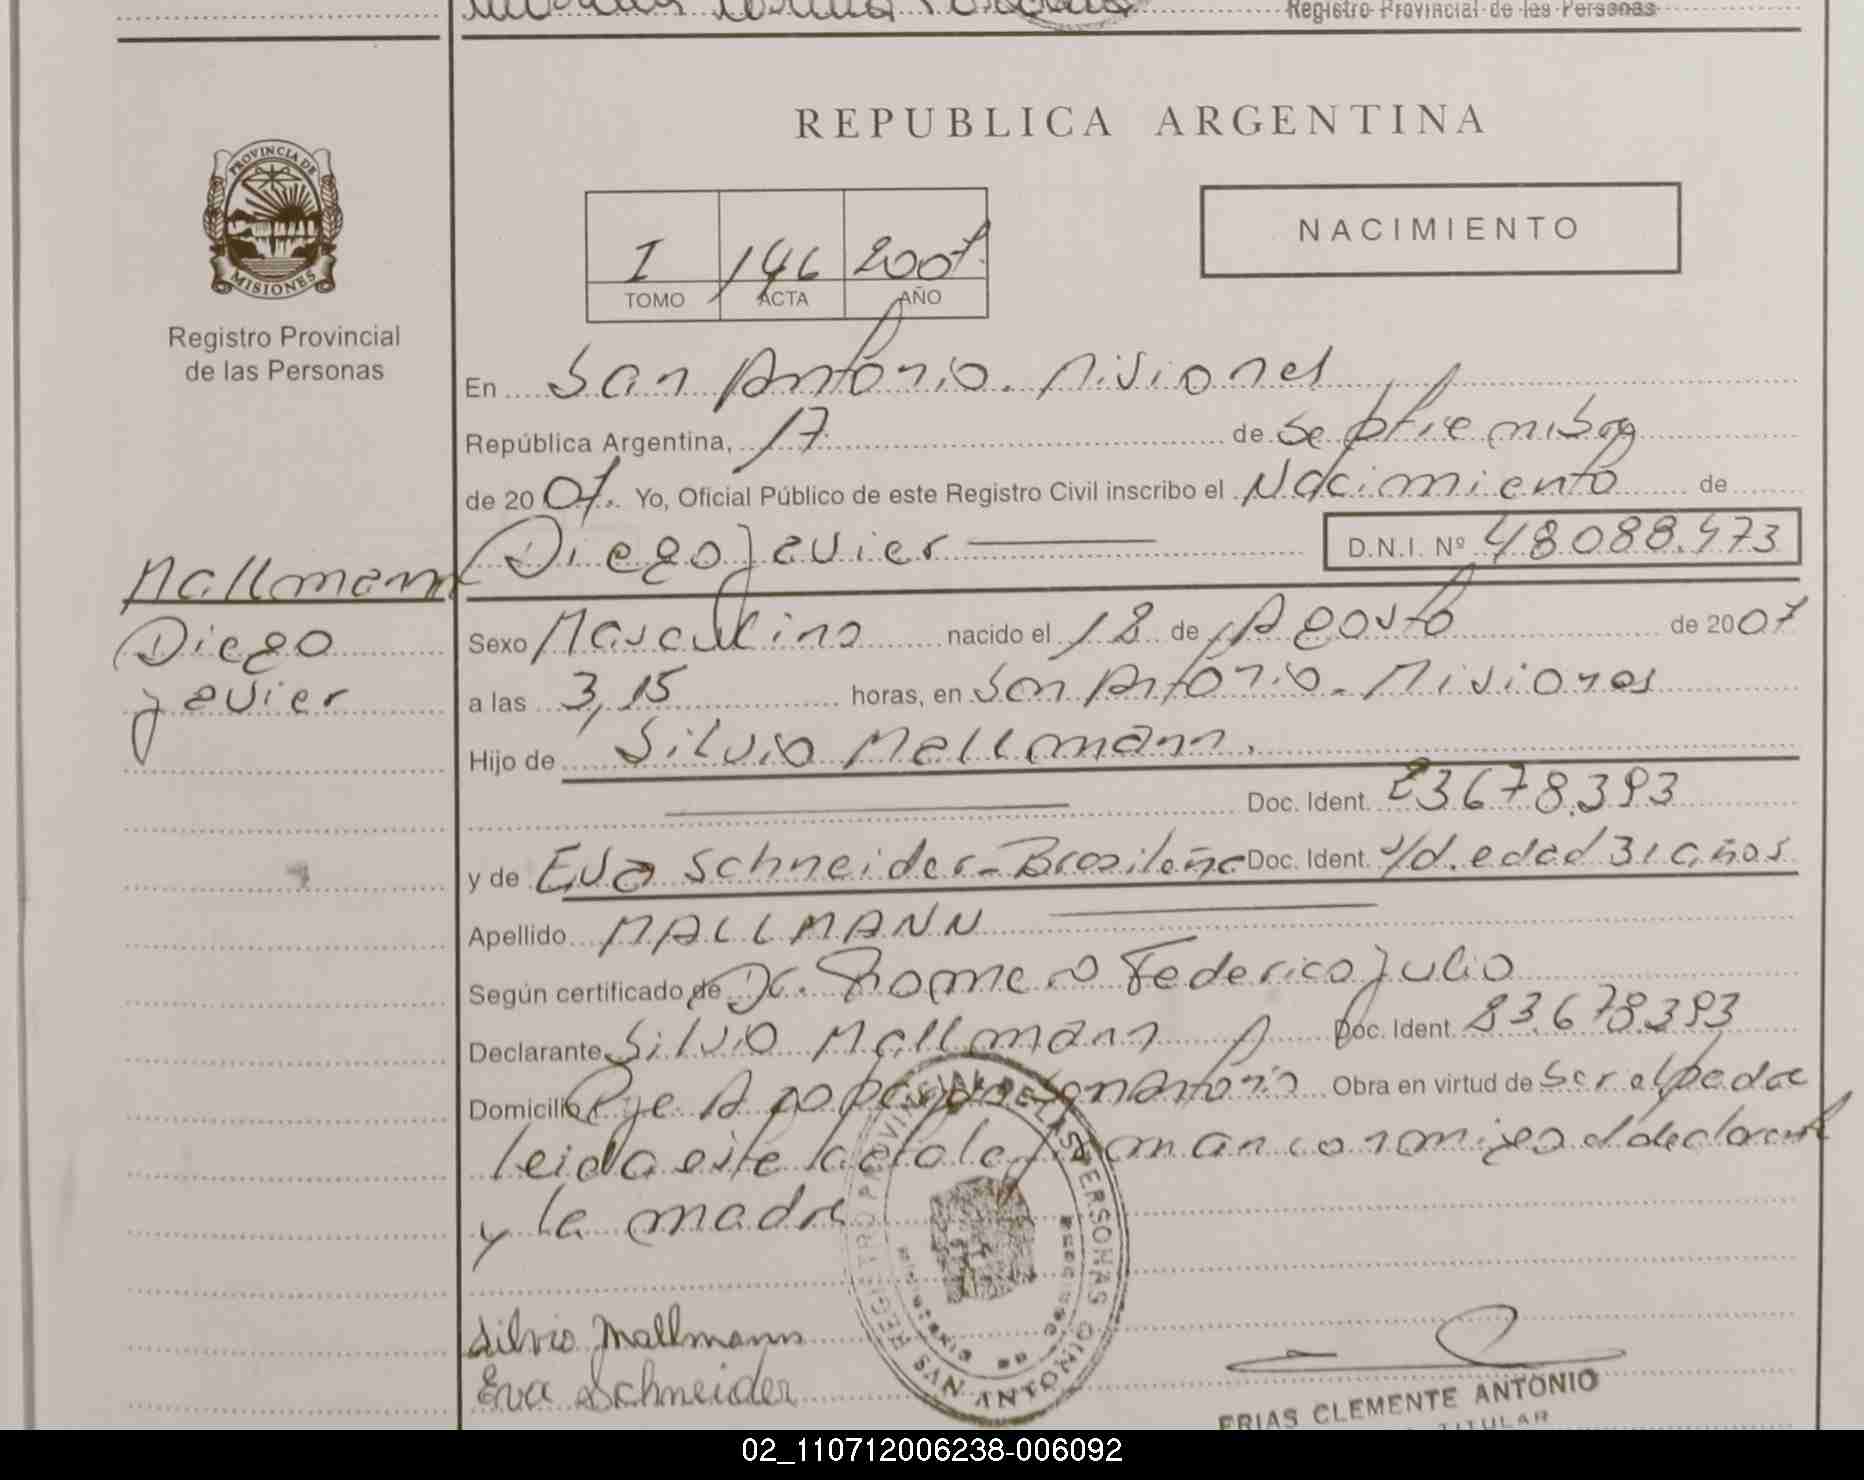 Registro Provincial de las Personas
REPUBLICA ARGENTINA
PROVINCIA DE
MISIONES
Registro Provincial
de las Personas
NACIMIENTO
I 146 2007.
TOMO ACTA AÑO
En San Antonio. Misiones
República Argentina, 17 de septiembre
de 2007. Yo, Oficial Público de este Registro Civil inscribo el Nacimiento de
Diego Javier D.N.I. Nº 48088.473
Mallmann
Diego
Javier
Sexo Masculino nacido el 18 de Agosto de 2007
a las 3,15 horas, en San Antonio. Misiones
Hijo de Silvio Mallmann.
Doc. Ident. 23678.393
y de Eva Schneider - Brasileña Doc. Ident. s/d. edad 31 años
Apellido MALLMANN
Según certificado de Dr. Romero Federico Julio
Declarante Silvio Mallmann Doc. Ident. 23.678.393
Domicilio San Antonio Obra en virtud de Ser el padre
leida este acta la firman conmigo el declarante
y la madre
Silvio Mallmann
Eva Schneider
REGISTRO PROVINCIAL DE LAS PERSONAS
SAN ANTONIO
FRIAS CLEMENTE ANTONIO
TITULAR
02_110712006238-006092